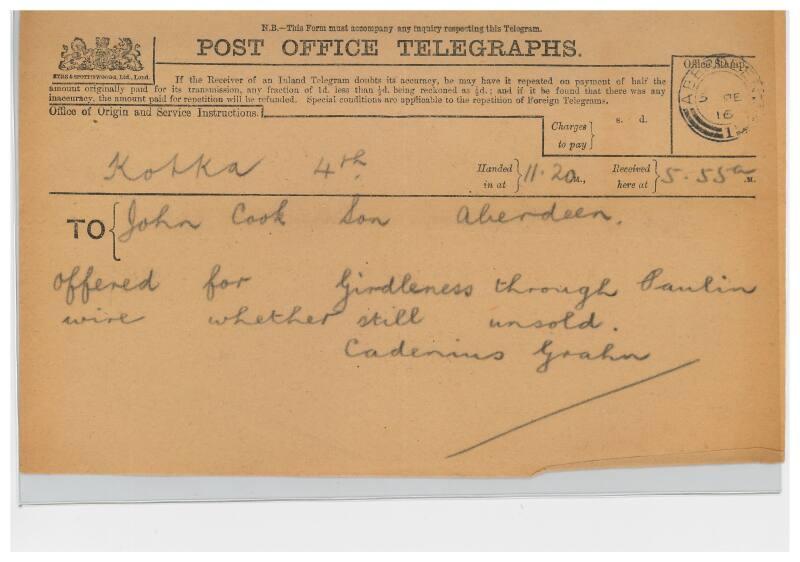 N.B.—This Form must accompany any inquiry respecting this Telegram.
POST OFFICE TELEGRAPHS.
EYRE & SPOTTISWOODE, Ltd., Lond.
If the Receiver of an Inland Telegram doubts its accuracy, he may have it repeated on payment of half the
amount originally paid for its transmission, any fraction of 1d. less than ½d. being reckoned as ½d.; and if it be found that there was any
inaccuracy, the amount paid for repetition will be refunded. Special conditions are applicable to the repetition of Foreign Telegrams.
Office Stamp.
Office of Origin and Service Instructions.
Charges to pay
s. d.
16
1
Kotka 4th
Handed in at 11.20 M.,
Received here at 5.55a M.
TO John Cook Son Aberdeen.
Offered for Girdleness through Paulin
wire whether still unsold.
Cadenius Grahn